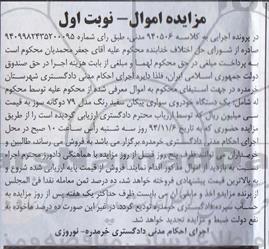 مزایده اموال – نوبت اول
در پرونده اجرائی به کلاسه ۹۴۰۵۰۶ مدنی، طبق رای شماره ۹۴۰۹۹۸۲۴۳۵۲۰۰۰۹۵
صادره از شورای حل اختلاف خدابنده محکوم علیه آقای جعفر محمدیان محکوم است
به پرداخت مبلغی در حق محکوم لهم و مبلغی از بابت هزینه اجرا در حق صندوق
دولت جمهوری اسلامی ایران، فلذا دایره اجرای احکام مدنی دادگستری شهرستان
خرمدره در جهت استیفای محکوم به اموال معرفی شده از محکوم علیه توسط محکوم
له شامل، یک دستگاه خودروی سواری پیکان سفید رنگ مدل ۷۹ دوگانه سوز به قیمت
سی میلیون ریال که توسط کارشناس رسمی دادگستری ارزیابی گردیده است را از طریق
مزایده حضوری که به تاریخ ۹۴/۱۱/۴ روز شنبه راس ساعت ۱۰ صبح در محل
اجرای احکام مدنی دادگستری خرمدره برگزار می باشد به فروش می رساند، طالبین و
خریداران می توانند ظرف پنج روز قبل از روز مزایده با هماهنگی دادورز محترم اجراء
نسبت به بازدید از اموال مذکور اقدام نمایند. فروش از قیمت پایه ارزیابی شده شروع و
به بالاترین قیمت پیشنهادی فروخته خواهد شد ده درصد ثمن معامله نقدا فی المجلس
از برنده اخذ و مابقی آن می بایست ظرف حداکثر یک هفته پس از روز مزایده به
حساب سپرده دادگستری خرمدره تودیع گردد. در غیر این صورت ده درصد ماخوذه به
نفع دولت ضبط و مزایده تجدید خواهد شد.
اجرای احکام مدنی دادگستری خرمدره- نوروزی